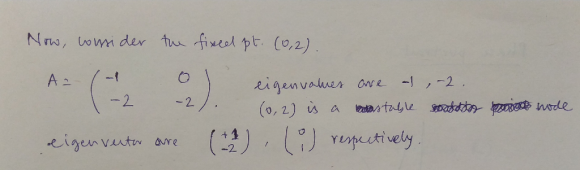 Now, consider the fixed pt. (0,2).
A = ( -1 0
-2 -2 ). eigenvalues are -1, -2.
(0,2) is a stable node
eigenvector are ( +1 -2 ), ( 0 1 ) respectively.